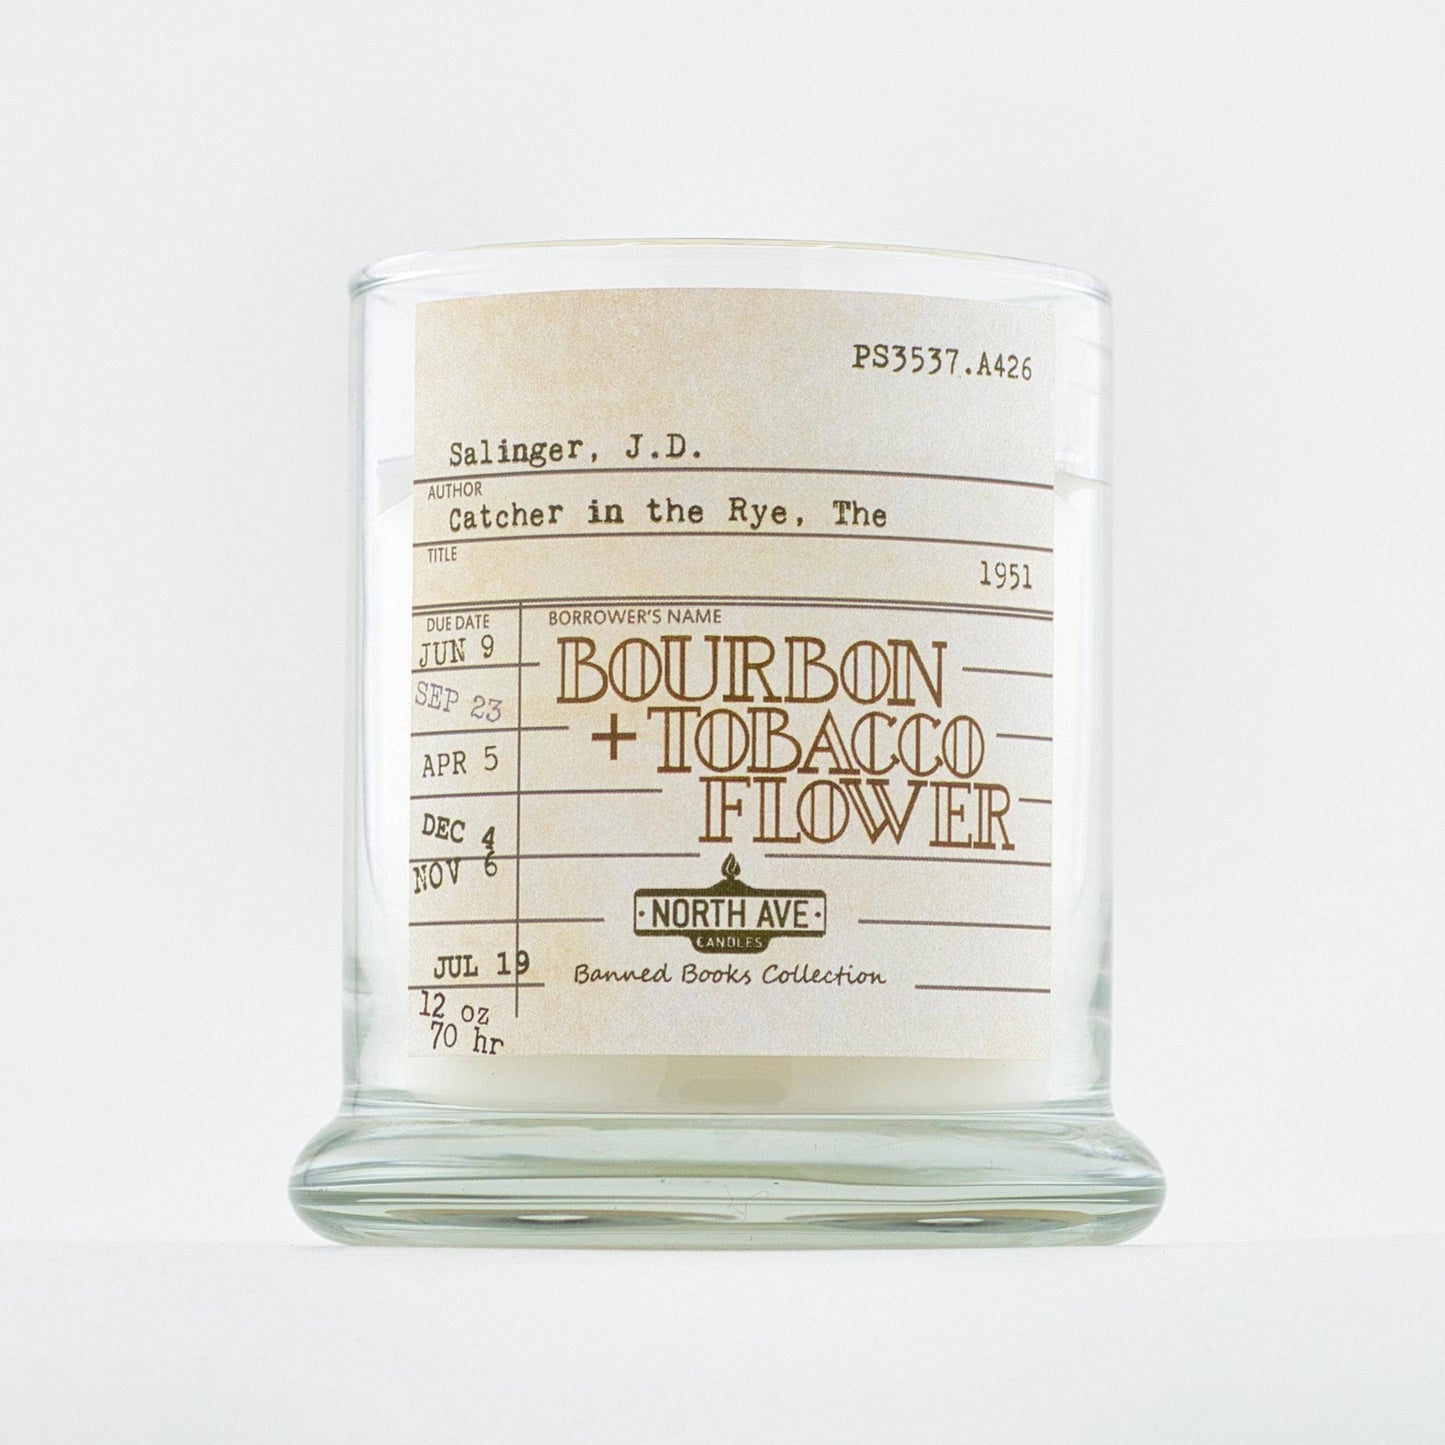 PS3537.A426
Salinger, J.D.
AUTHOR
Catcher in the Rye, The
TITLE
1951
DUE DATE
BORROWER'S NAME
JUN 9
SEP 23
APR 5
DEC 4
NOV 6
JUL 19
12 oz
70 hr
BOURBON
+ TOBACCO
FLOWER
· NORTH AVE ·
CANDLES
Banned Books Collection